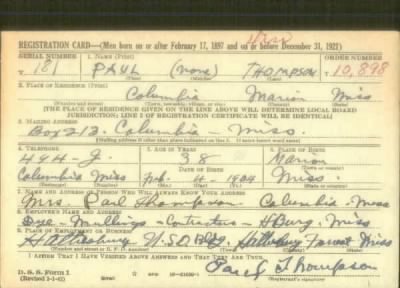 REGISTRATION CARD—(Men born on or after February 17, 1897 and on or before December 31, 1921)
SERIAL NUMBER 1. NAME (Print) ORDER NUMBER
181 PAUL (none) THOMPSON 10,898
(First) (Middle) (Last)
2. PLACE OF RESIDENCE (Print)
Columbia Marion Miss
(Number and street) (Town, township, village, or city) (County) (State)
[THE PLACE OF RESIDENCE GIVEN ON THE LINE ABOVE WILL DETERMINE LOCAL BOARD
JURISDICTION; LINE 2 OF REGISTRATION CERTIFICATE WILL BE IDENTICAL]
3. MAILING ADDRESS
Box 212. Columbia - Miss.
[Mailing address if other than place indicated on line 2. If same insert word same]
4. TELEPHONE 5. AGE IN YEARS 6. PLACE OF BIRTH
494-J. 38 Marion
DATE OF BIRTH
Columbia Miss Feb. 4 1904 Miss
(Exchange) (Number) (Mo.) (Day) (Yr.) (State or country)
7. NAME AND ADDRESS OF PERSON WHO WILL ALWAYS KNOW YOUR ADDRESS
Mrs. Paul Thompson Columbia - Miss
8. EMPLOYER'S NAME AND ADDRESS
Dye - Mullings - Contractors - H'Burg. Miss
9. PLACE OF EMPLOYMENT OR BUSINESS
Hattiesburg U.S.O. Bldg. Hattiesburg Forrest Miss
(Number and street or R. F. D. number) (Town) (County) (State)
I AFFIRM THAT I HAVE VERIFIED ABOVE ANSWERS AND THAT THEY ARE TRUE.
Paul Thompson
D. S. S. Form 1
(Revised 1-1-42) (Registrant's signature)